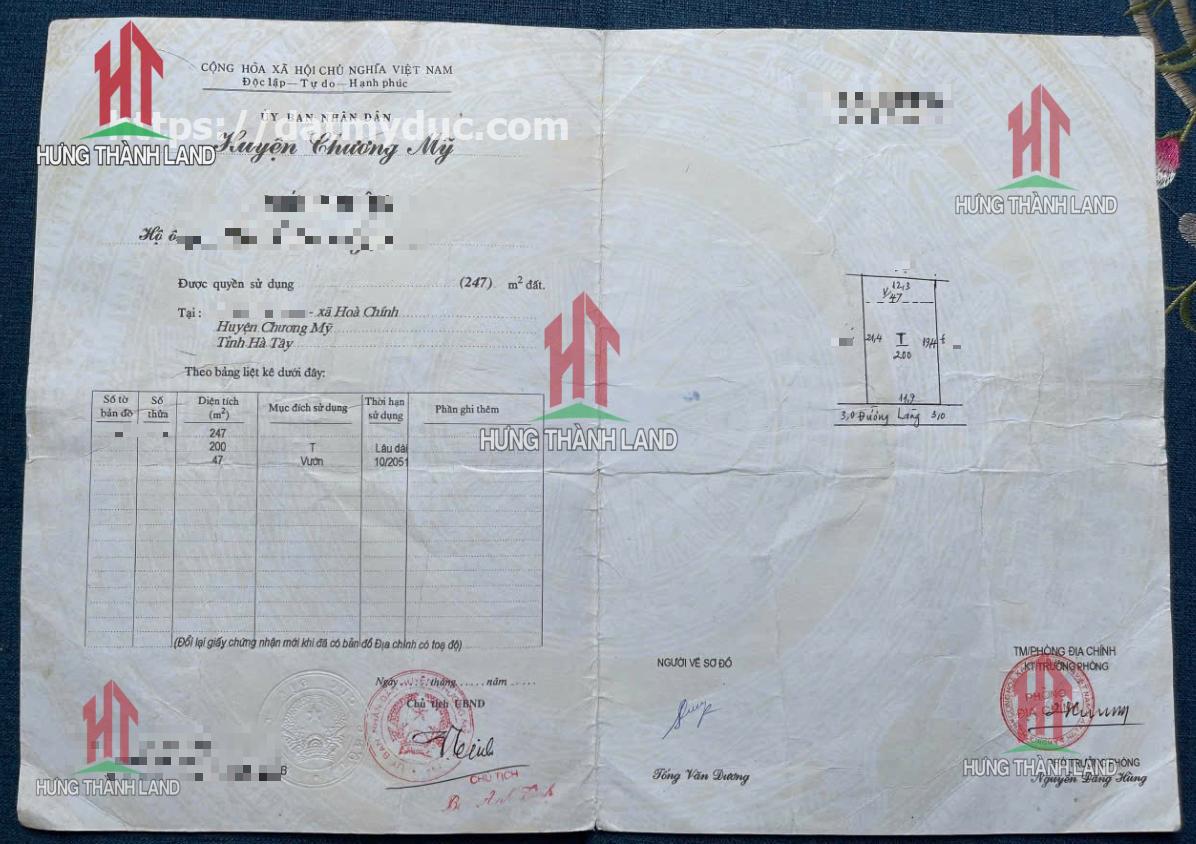 CỘNG HÒA XÃ HỘI CHỦ NGHĨA VIỆT NAM
Độc lập — Tự do — Hạnh phúc
ỦY BAN NHÂN DÂN
https://datmyduc.com
Huyện Chương Mỹ
HƯNG THÀNH LAND
Hộ ô
Được quyền sử dụng (247) m² đất.
Tại : - xã Hoà Chính
Huyện Chương Mỹ
Tỉnh Hà Tây
Theo bảng liệt kê dưới đây:
Số tờ bản đồ Số thửa Diện tích (m²) Mục đích sử dụng Thời hạn sử dụng Phần ghi thêm
247
200 T Lâu dài
47 Vườn 10/2051
(Đổi lại giấy chứng nhận mới khi đã có bản đồ Địa chính có toạ độ)
Ngày tháng năm
Chủ tịch UBND
CHỦ TỊCH
6
HƯNG THÀNH LAND
HƯNG THÀNH LAND
HƯNG THÀNH LAND
12,3
V 47
21,4 T 19,4
200
11,9
3,0 Đường Làng 3,0
NGƯỜI VẼ SƠ ĐỒ
Tống Văn Dương
TM/PHÒNG ĐỊA CHÍNH
KT TRƯỞNG PHÒNG
PHÒNG
ĐỊA CHÍNH
PHÓ TRƯỞNG PHÒNG
HƯNG THÀNH LAND
Nguyễn Đăng Hùng